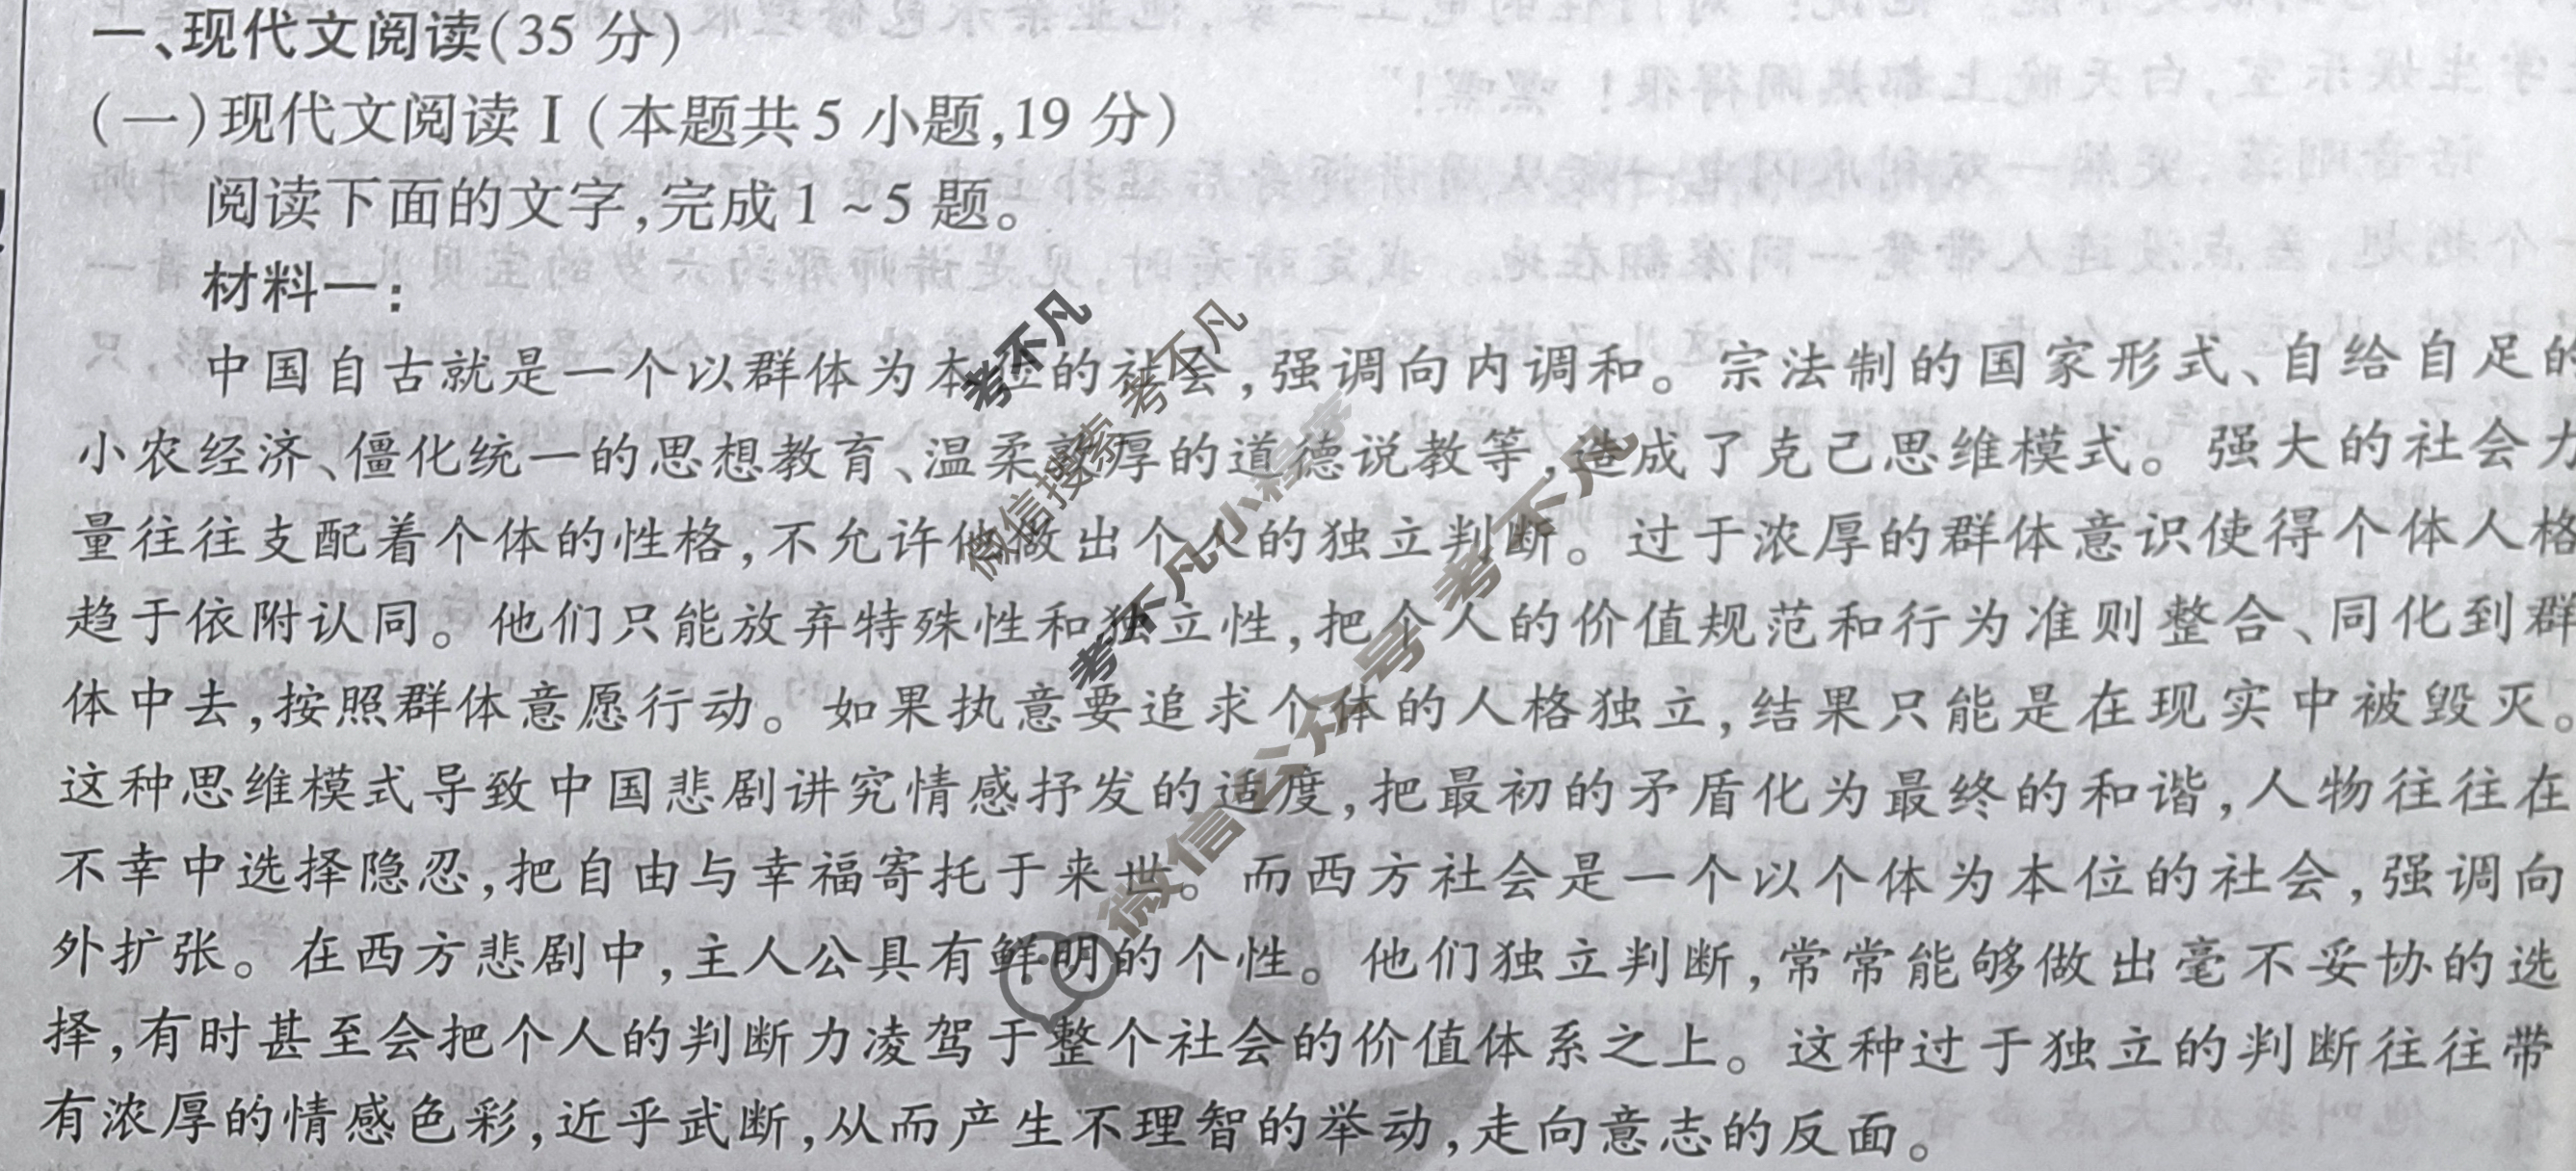 一、现代文阅读(35 分)
(一)现代文阅读Ⅰ(本题共5 小题,19 分)
阅读下面的文字,完成1 ~5 题。
材料一:
中国自古就是一个以群体为本位的社会,强调向内调和。宗法制的国家形式、自给自足的
小农经济、僵化统一的思想教育、温柔敦厚的道德说教等,造成了克己思维模式。强大的社会力
量往往支配着个体的性格,不允许他做出个人的独立判断。过于浓厚的群体意识使得个体人格
趋于依附认同。他们只能放弃特殊性和独立性,把个人的价值规范和行为准则整合、同化到群
体中去,按照群体意愿行动。如果执意要追求个体的人格独立,结果只能是在现实中被毁灭。
这种思维模式导致中国悲剧讲究情感抒发的适度,把最初的矛盾化为最终的和谐,人物往往在
不幸中选择隐忍,把自由与幸福寄托于来世。而西方社会是一个以个体为本位的社会,强调向
外扩张。在西方悲剧中,主人公具有鲜明的个性。他们独立判断,常常能够做出毫不妥协的选
择,有时甚至会把个人的判断力凌驾于整个社会的价值体系之上。这种过于独立的判断往往带
有浓厚的情感色彩,近乎武断,从而产生不理智的举动,走向意志的反面。
考不凡
微信搜索 考不凡
考不凡小程序
微信公众号 考不凡